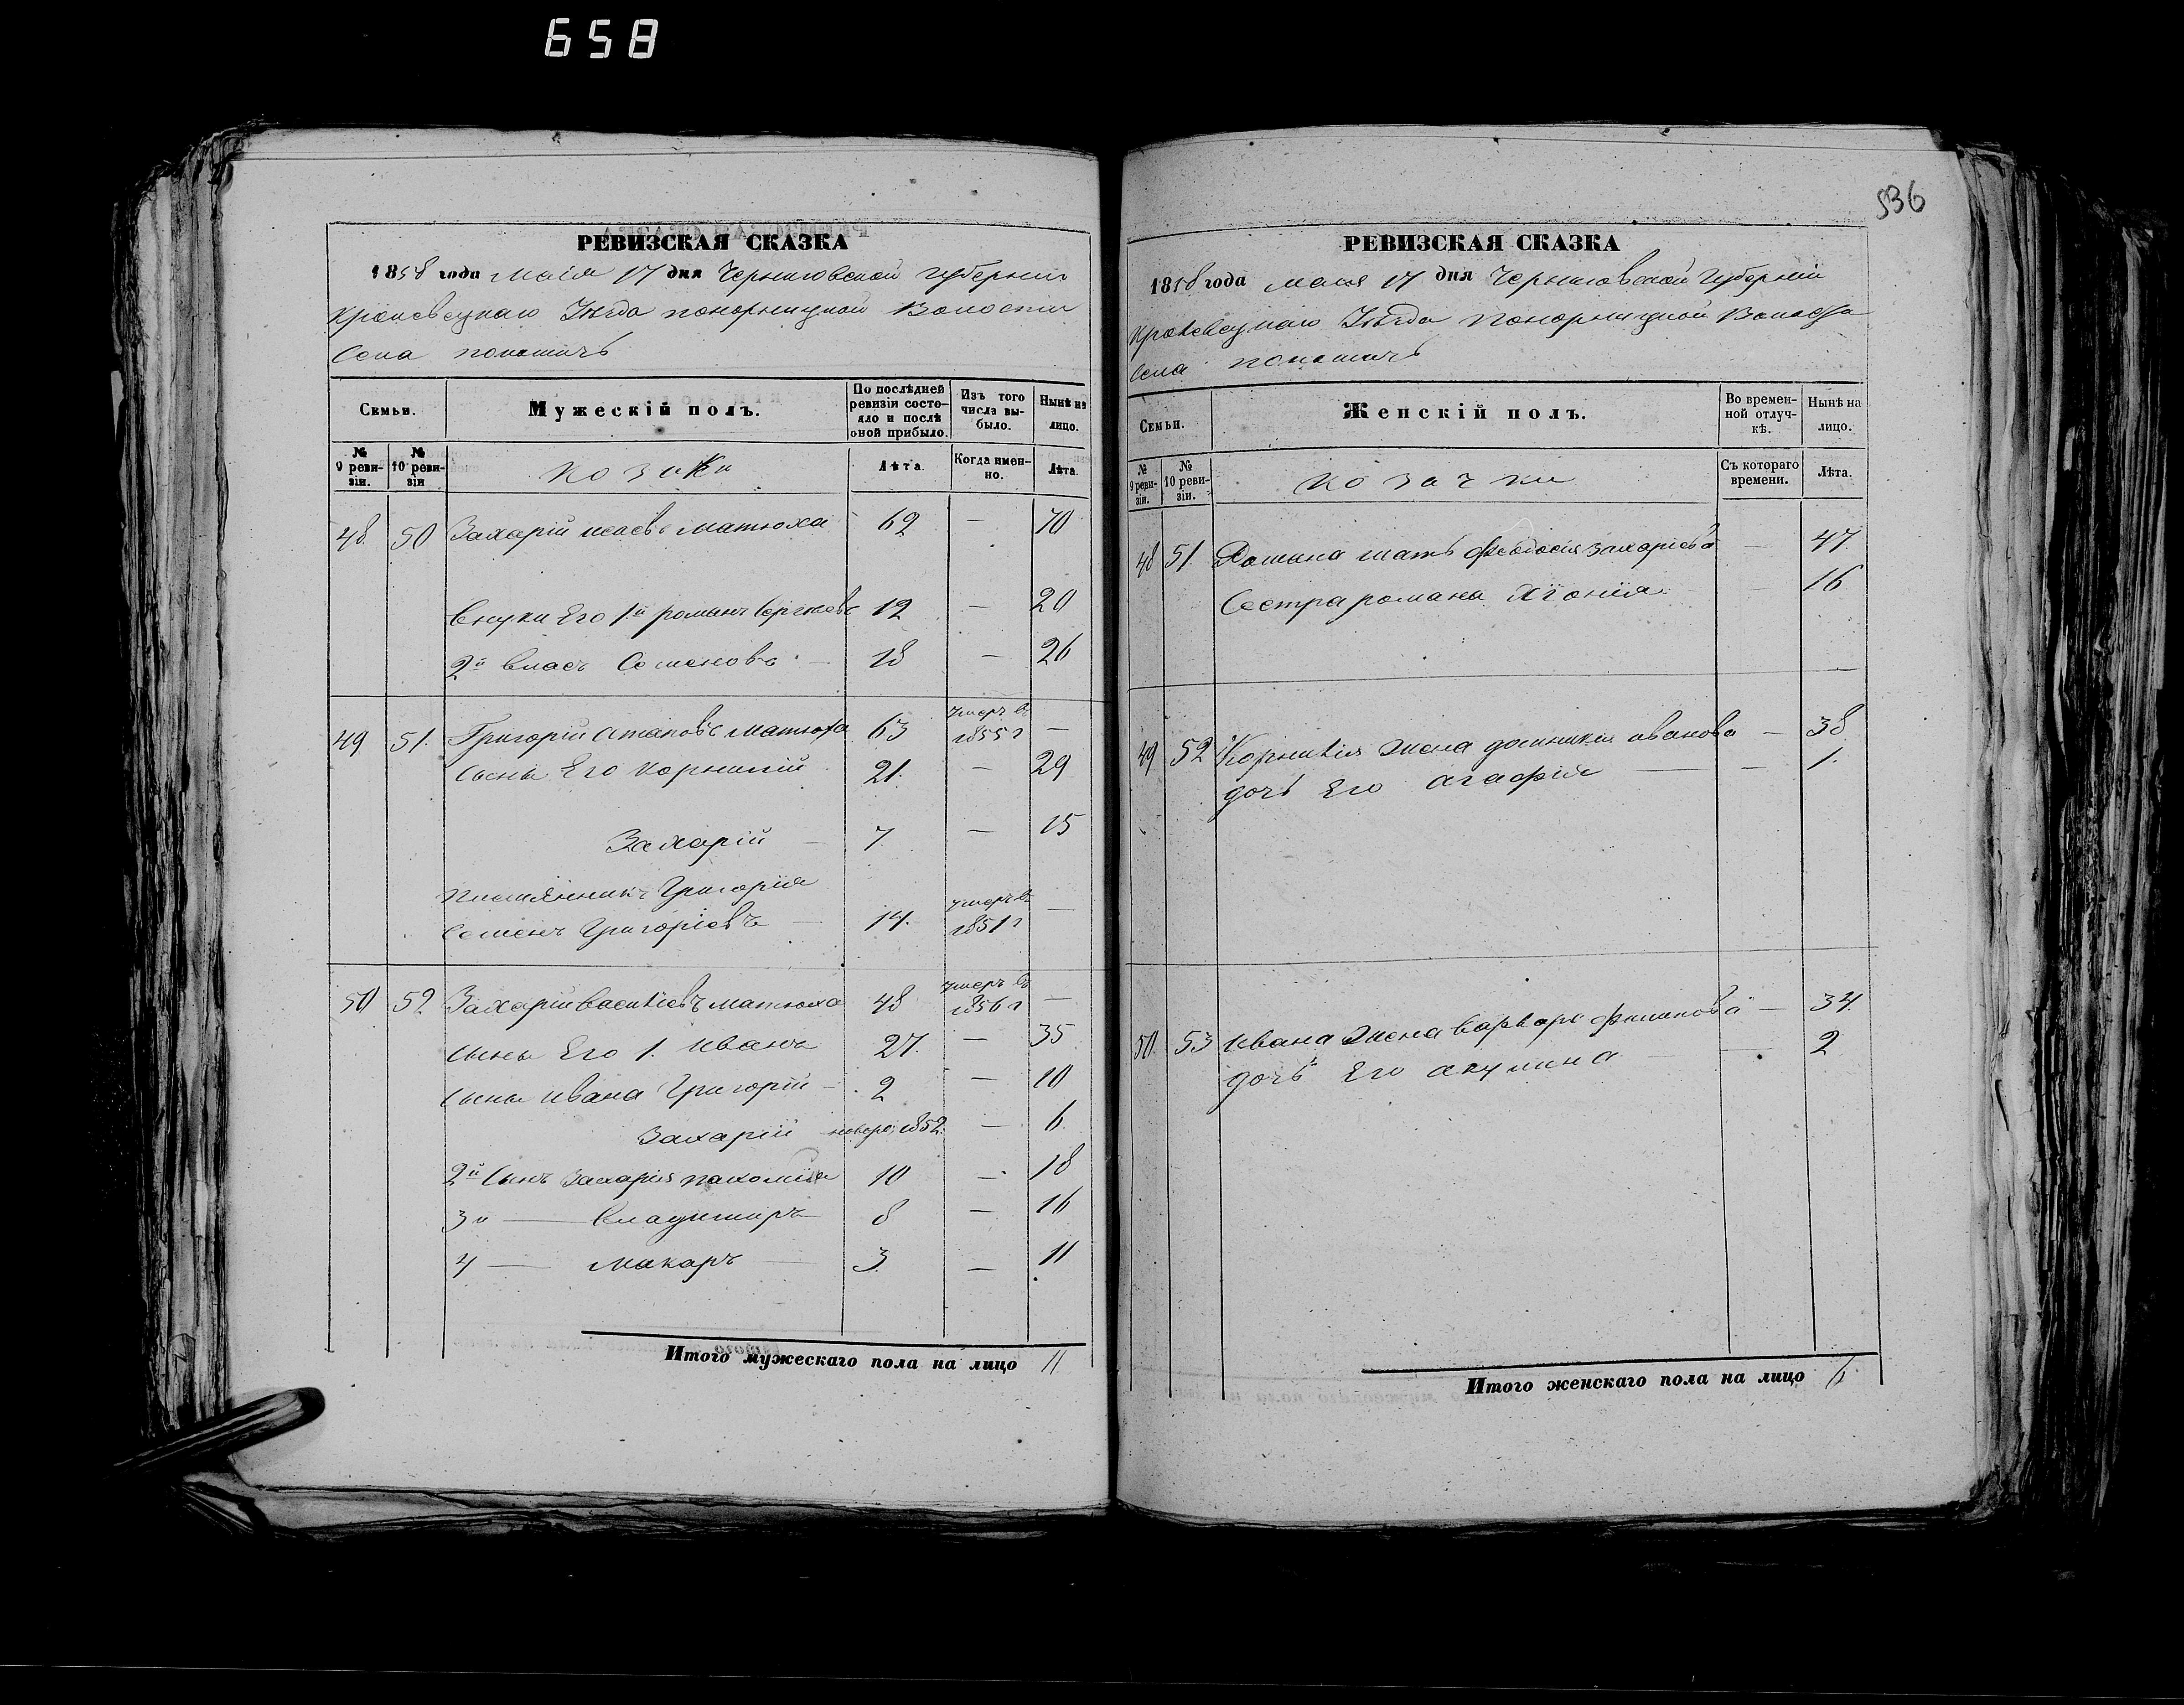 658
РЕВИЗСКАЯ СКАЗКА
1858 года Маія 17 дня Черниговской губерніи
Кролевецкаго Уѣзда Понорницкой Волости
Села Покошичь
Семьи.
Мужескій полъ.
По послѣдней ревизіи состояло и послѣ оной прибыло.
Изъ того числа выбыло.
Нынѣ на лицо.
№ 9 ревизіи.
№ 10 ревизіи
Козаки
Лѣта.
Когда именно.
Лѣта.
48 50 Захарій Исаевъ Матюха 62 — 70
Внуки Его 1й Романъ Сергѣевъ 12 — 20
2й Власъ Семеновъ — 18 — 26
49 51. Григорій Агаповъ Матюха 63 умеръ въ 1855 г —
Сыны Его Корнилій 21. — 29
Захарій — 7 — 15
Племянникъ Григорія
Семенъ Григоріевъ — 14. умеръ въ 1851 г —
50 52 Захарій Василіевъ Матюха 48 умеръ въ 1856 г —
Сыны Его 1. Иванъ 27. — 35
Сыны Ивана Григорій — 2 — 10
Захарій новоро. 1852. — 6
2й Сынъ Захарія Пахомій 10 — 18
3й — Владимиръ — 8 — 16
4 — Макаръ — 3 — 11
Итого мужескаго пола на лицо 11
536
РЕВИЗСКАЯ СКАЗКА
1858 года Маія 17 дня Черниговской Губерніи
Кролевецкаго Уѣзда Понорницкой Волости
Села Покошичь
Семьи.
Женскій полъ.
Во временной отлучкѣ.
Нынѣ на лицо.
№ 9 ревизіи.
№ 10 ревизіи.
Козачки
Съ котораго времени.
Лѣта.
48 51. Романа мать Феодосія Захаріева — 47.
Сестра Романа Хіонія — 16
49 52 Корнилія Жена Домникія Иванова — 38
дочь Его Агафія — — 1.
50. 53 Ивана Жена Варвара Филипова — 34.
дочь Его Акулина — 2
Итого женскаго пола на лицо 6